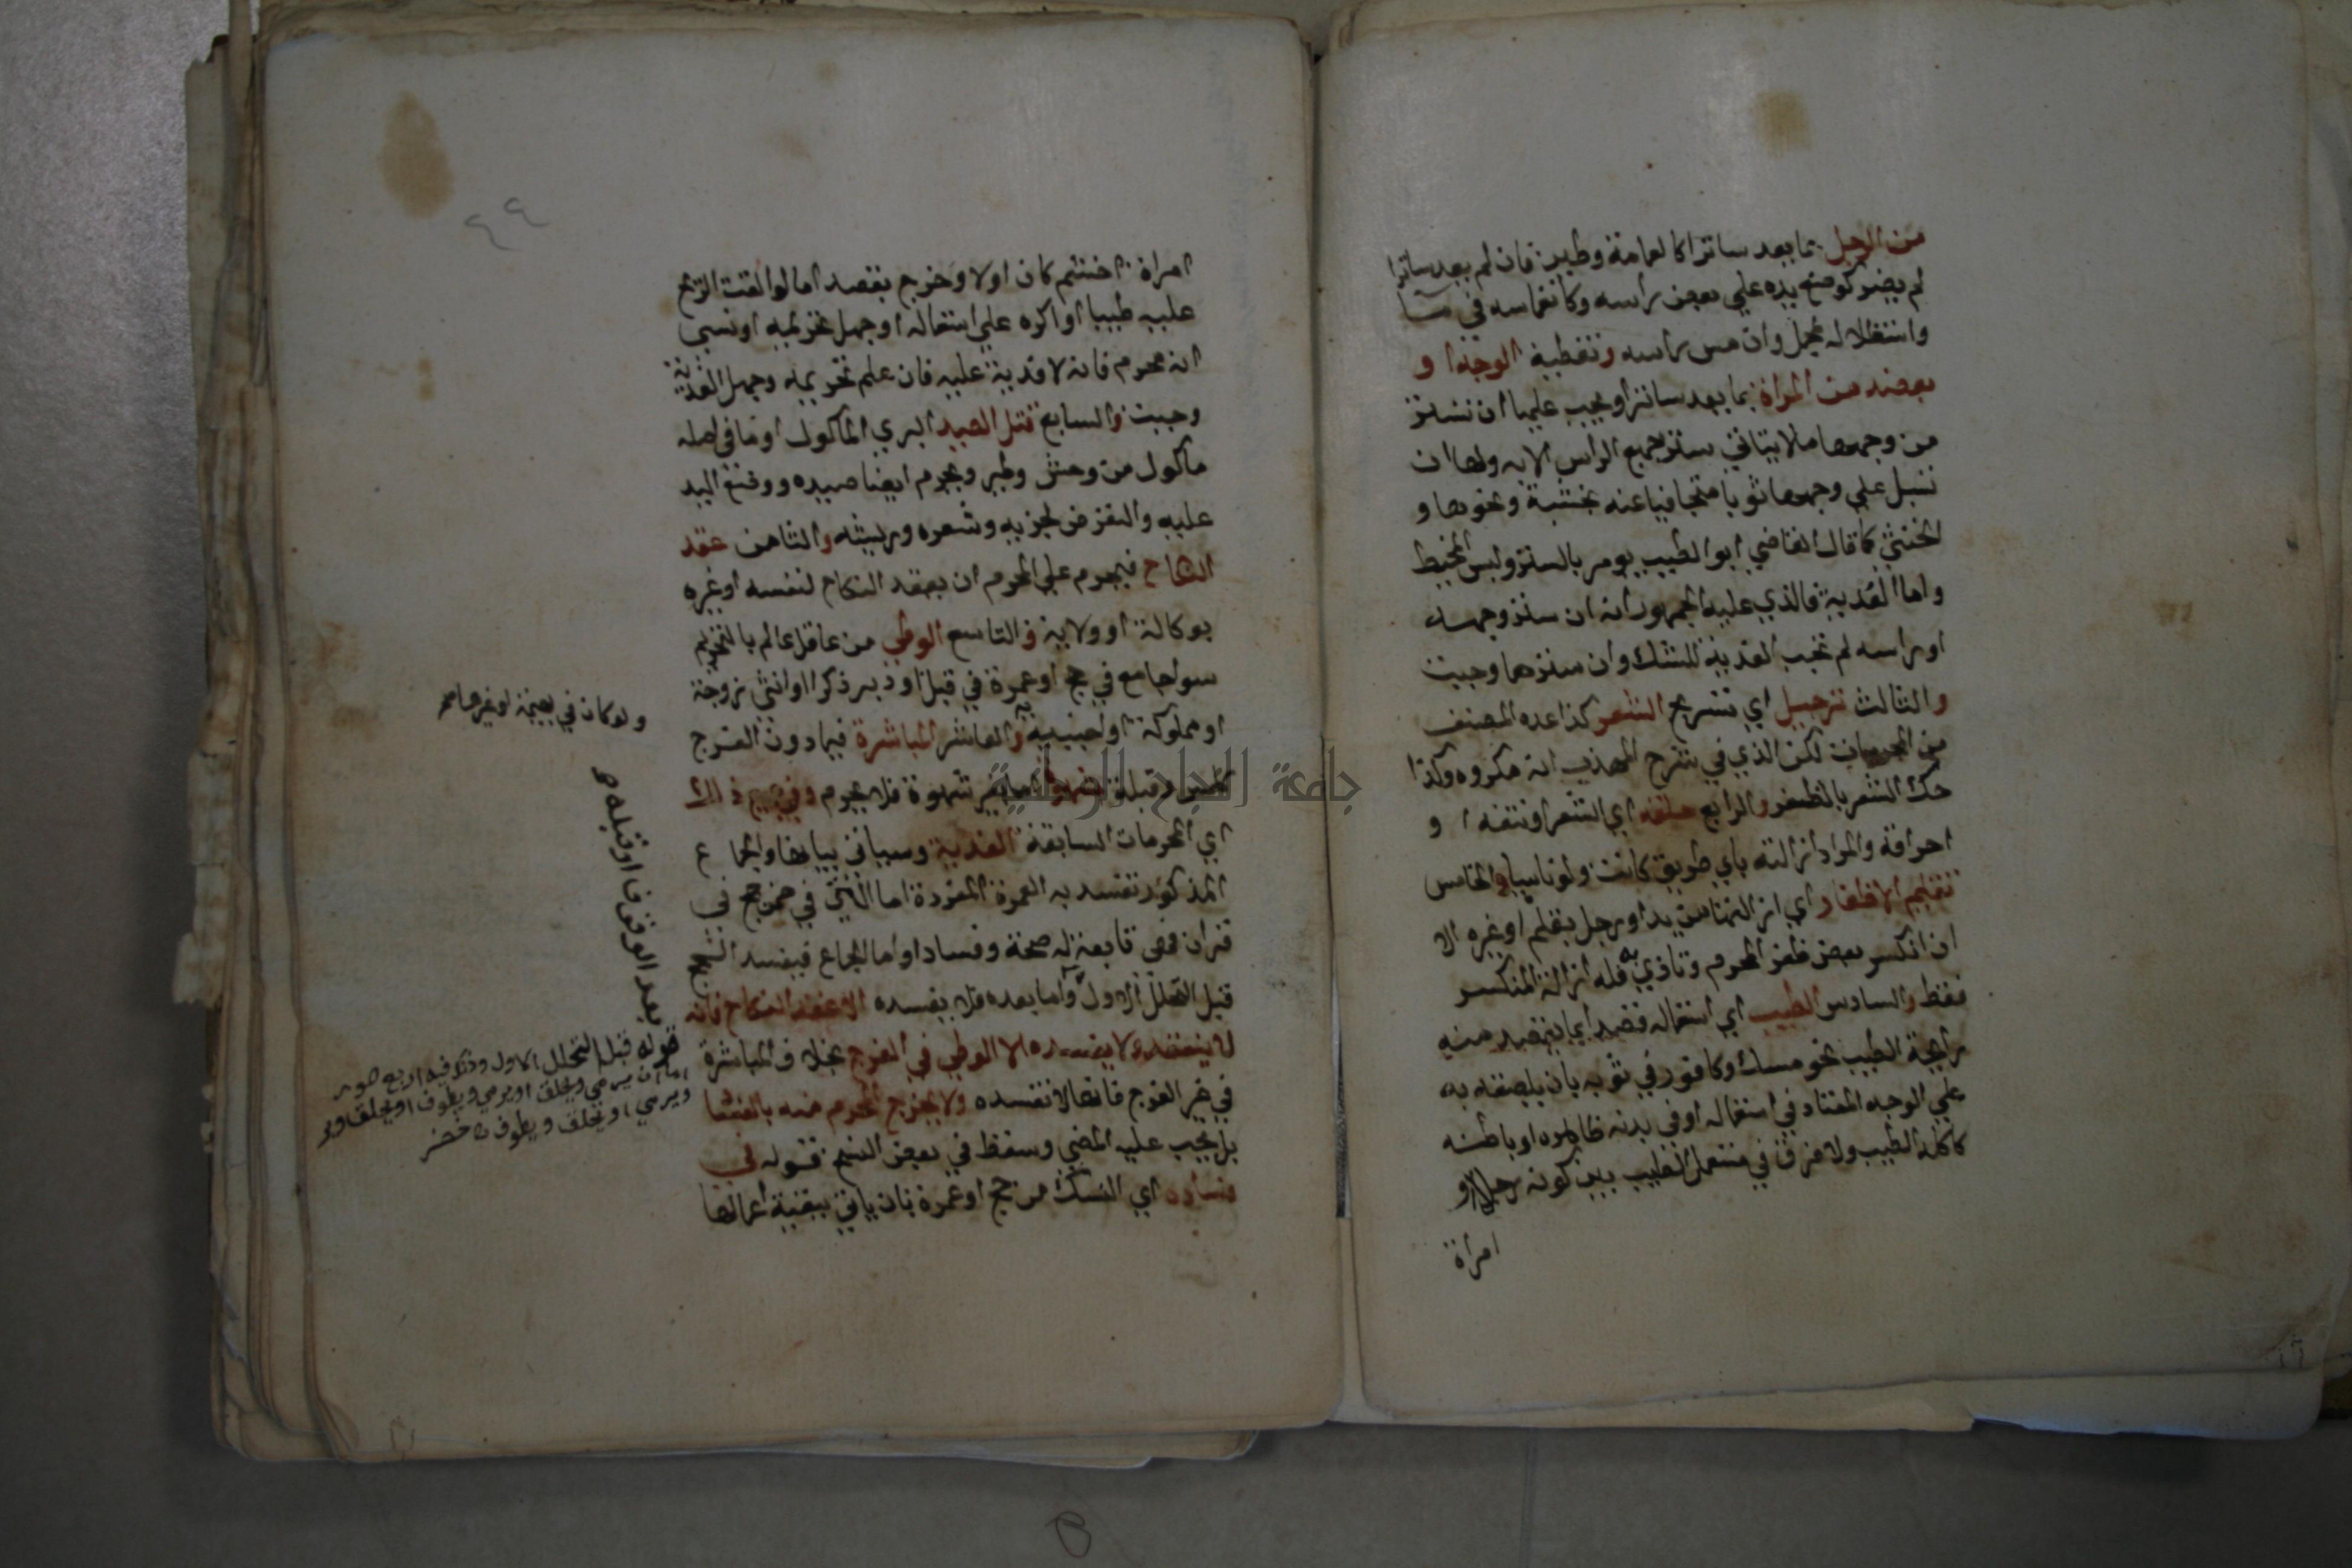 من الرجل بما يعد ساترا كالعمامة وطين فان لم يعد ساترا
لم يضر كوضع يده علي بعض راسه وكانغماسه في ما
واستظلاله بمحمل وان مس راسه وتغطية الوجه او
بعضه من المراة بما يعد ساترا ويجب عليها ان تستر
من وجهها ما لا يتاتي ستر جميع الراس الا به ولها ان
تسبل علي وجهها ثوبا متجافيا عنه بخشبة ونحوها و
الخنثي كما قال القاضي ابو الطيب يومر بالستر ولبس المخيط
واما الفدية فالذي عليه الجمهور انه ان ستر وجهه
او راسه لم تجب الفدية للشك وان سترهما وجبت
والثالث ترجيل اي تسريح الشعر كذا عده المصنف
من المحرمات لكن الذي في شرح المهذب انه مكروه وكذا
حك الشعر بالظفر والرابع حلقه اي الشعر او نتفه ا و
احراقه والمراد ازالته باي طريق كانت ولو ناسيا والخامس
تقليم الاظفار اي ازالتها من يد او رجل بقلم او غيره الا
ان انكسر بعض ظفر المحرم وتاذي به فله ازالة المنكسر
فقط والسادس الطيب اي استعماله قصدا بما يقصد منه
رايحة الطيب نحو مسك وكافور في ثوبه بان يلصقه به
علي الوجه المعتاد في استعماله او في بدنه ظاهره او باطنه
كاكله الطيب ولا فرق في مستعمل الطيب بين كونه رجلا او
امراة
٩٩
امراة اخشم كان اولا وخرج بقصد امالو القت الريح
عليه طيبا او اكره علي استعماله او جهل تحريمه او نسي
انه محرم فانه لا فدية عليه فان علم تحريمه وجهل الفدية
وجبت والسابع قتل الصيد البري الماكول او ما في اصله
ماكول من وحش وطير ويحرم ايضا صيده ووضع اليد
عليه والتعرض لجزيه وشعره وريشه والثامن عقد
النكاح فيحرم علي المحرم ان يعقد النكاح لنفسه او غيره
بوكالة او ولاية و التاسع الوطي من عاقل عالم بالتحريم
سوا جامع في حج او عمرة في قبل او دبر ذكرا او انثي زوجة
او مملوكة او اجنبية والعاشر المباشرة فيما دون الفرج
كلمس وقبلة بشهوة اما بغير شهوة فلا يحرم وفي جميع ذلك
اي المحرمات السابقة الفدية وسياتي بيانها والجما ع
المذكور تفسد به العمرة المفردة اما التي في ضمن حج في
قران فهي تابعة له صحة وفسادا واما الجماع فيفسد الحج
قبل التحلل الاول واما بعده فلا يفسده الا عقد النكاح فانه
لا ينعقد ولا يفسده الا الوطي في الفرج بخلاف المباشرة
في غير الفرج فانها لا تفسده ولا يخرج المحرم منه بالفساد
بل يجب عليه المضي وسقط في بعض النسخ قوله في
فساده اي النسك من حج او عمرة بان ياتي ببقية اعمالها
ولو كان في بهيمة او غيرها
بعد الوقوف او قبله
قوله قبل التحلل الاول وذكر فيه اربع صور
اما ان يرمي ويحلق او يرمي ويطوف او يحلق
ويرمي او يحلق ويطوف
جامعة النجاح الوطنية